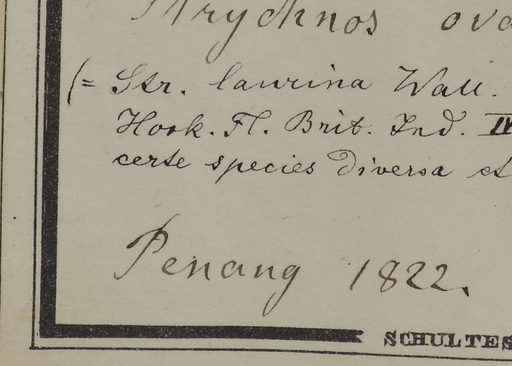 Strychnos ova
(= Str. laurina Wall.
Hook. Fl. Brit. Ind. IV
certe species diversa et
Penang 1822.
SCHULTES